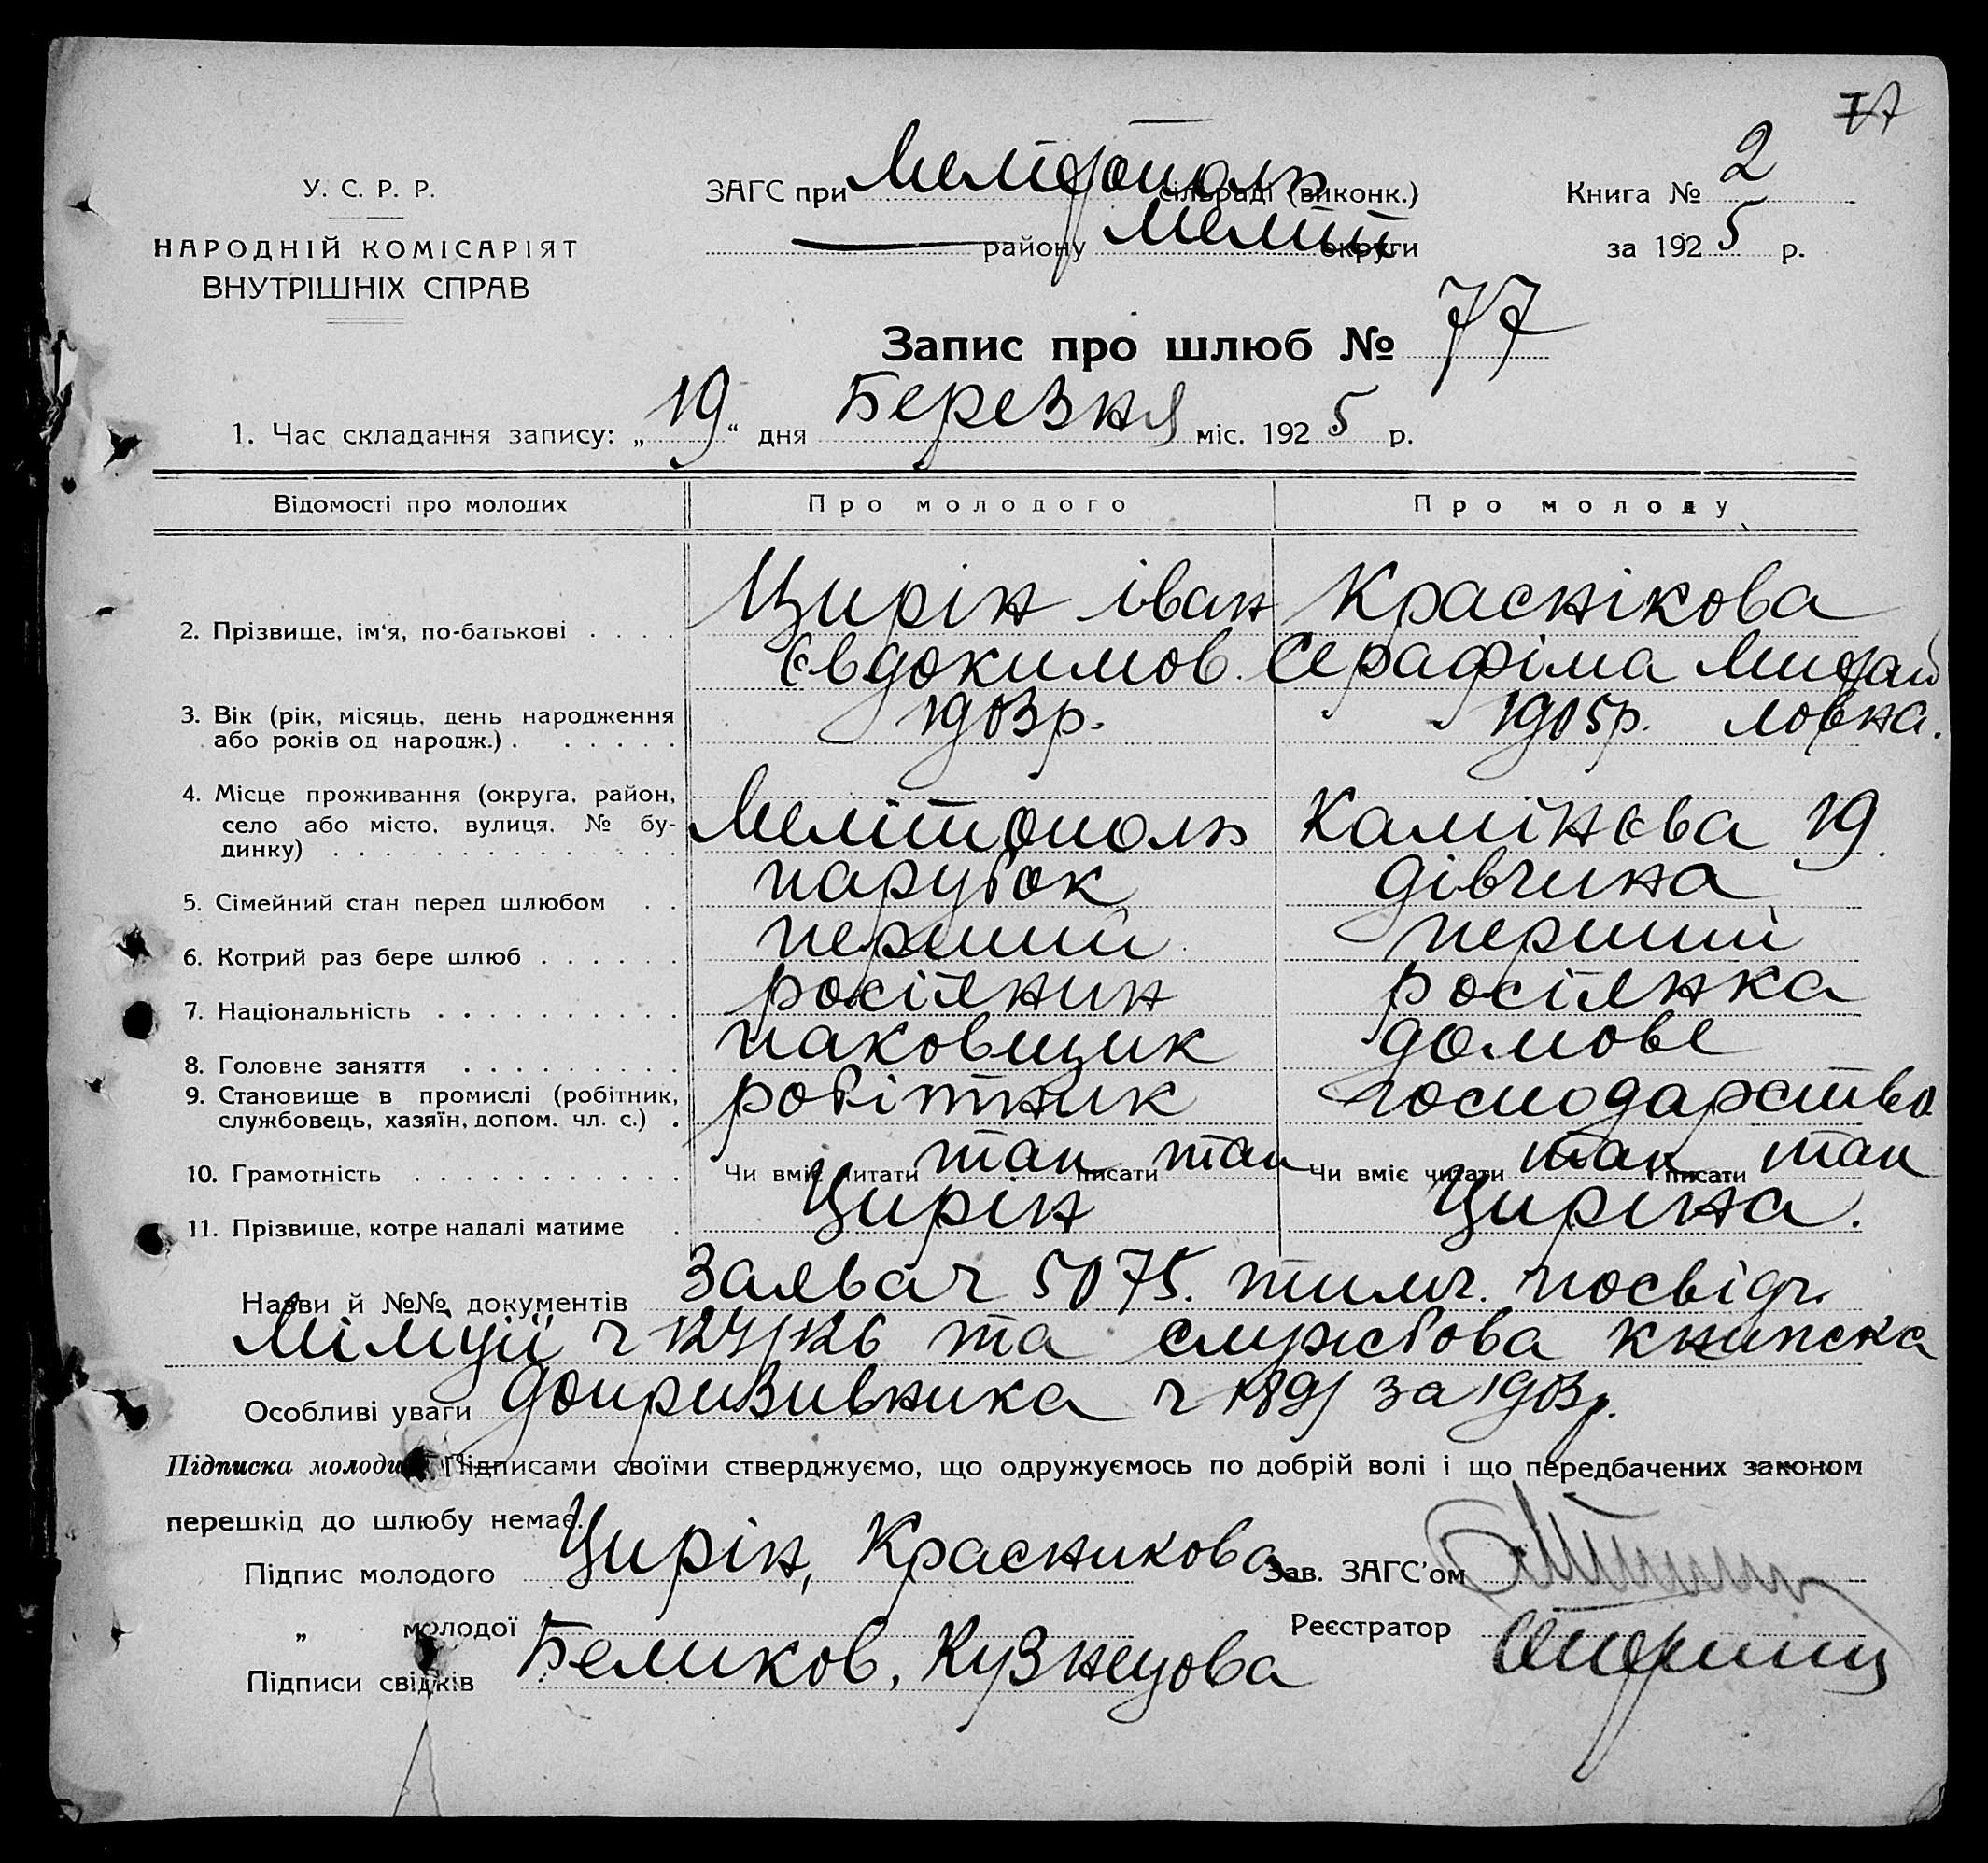 77
У. С. Р. Р.
НАРОДНІЙ КОМІСАРІЯТ
ВНУТРІШНІХ СПРАВ
ЗАГС при Мелітополь сільраді (виконк.)
району Меліт округи
Книга № 2
за 1925 р.
Запис про шлюб № 77
1. Час складання запису: „19“ дня Березня міс. 1925 р.
Відомості про молодих Про молодого Про молоду
2. Прізвище, ім'я, по-батькові . . . . Цирін іван Краснікова
Євдокимов. Серафіма Михай
3. Вік (рік, місяць, день народження 1903р. 1905р. ловна.
або років од народж.) . . . . . .
4. Місце проживання (округа, район,
село або місто, вулиця, № бу- Мелітополь Камінєва 19.
динку) . . . . . . . . . . . . . .
5. Сімейний стан перед шлюбом . . парубок дівчина
6. Котрий раз бере шлюб . . . . . . перший перший
7. Національність . . . . . . . . . . росіянин росіянка
8. Головне заняття . . . . . . . . . паковщик домове
9. Становище в промислі (робітник, робітник господарство
службовець, хазяїн, допом. чл. с.) .
10. Грамотність . . . . . . . . . . . . Чи вміє читати так писати так Чи вміє читати так писати так
11. Прізвище, котре надалі матиме . Цирін Циріна.
Назви й №№ документів Заява ч 5075. тимч. посвідч.
Міліції ч 124/126 та службова книжка
Особливі уваги допризивника ч 1891 за 1903р.
Підписка молодих: Підписами своїми стверджуємо, що одружуємось по добрій волі і що передбачених законом
перешкід до шлюбу немає.
Підпис молодого Цирін, Красникова Зав. ЗАГС'ом
„ молодої Реєстратор
Підписи свідків Беликов, Кузнецова